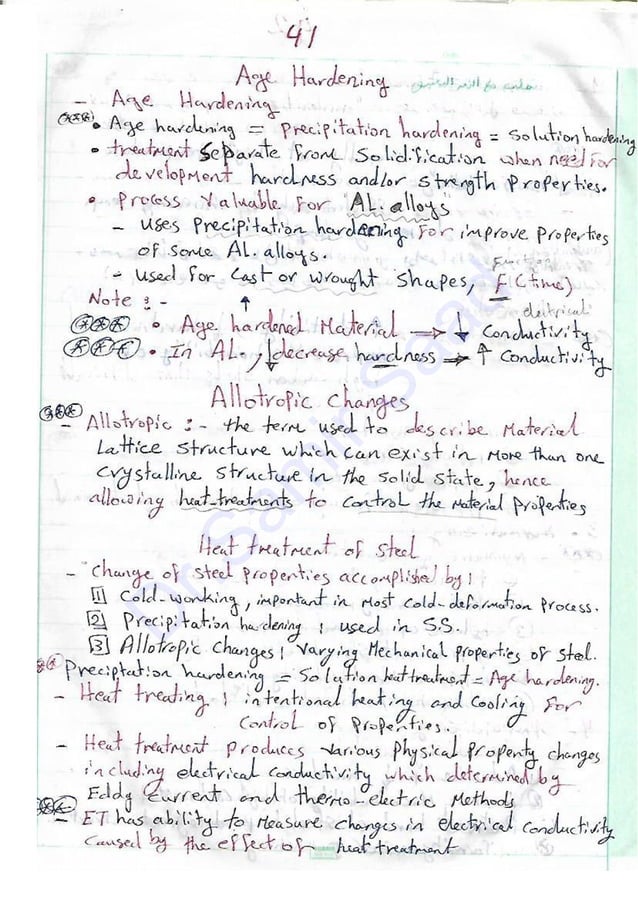 41
Age Hardening
- Age Hardening
• Age hardening = Precipitation hardening = solution hardening
• treatment separate from Solidification when need for
development hardness and/or strength properties.
• Process valuable for AL. alloys
- uses Precipitation hardening for improve properties
of some AL. alloys.
- used for Cast or wrought shapes, F(time)
function
Note :-
• Age hardened Material → ↓ electrical Conductivity
• In AL., ↓ decrease hardness → ↑ Conductivity
Allotropic Changes
- Allotropic :- the term used to describe Material
Lattice structure which can exist in more than one
crystalline structure in the solid state, hence
allowing heat treatments to control the Material Properties
Heat treatment of steel
- Change of steel properties accomplished by:
1 Cold-working, important in most cold-deformation process.
2 Precipitation hardening ; used in S.S.
3 Allotropic Changes; Varying Mechanical properties of steel.
Preciptation hardening = Solution heat treatment = Age hardening.
- Heat treating ; intentional heating and cooling for
Control of Properties.
- Heat treatment produces various physical Property changes
including electrical conductivity which determined by
Eddy Current and thermo-electric Methods
- ET has ability to Measure changes in electrical conductivity
caused by the effect of heat treatment
Dr. Samir Saad